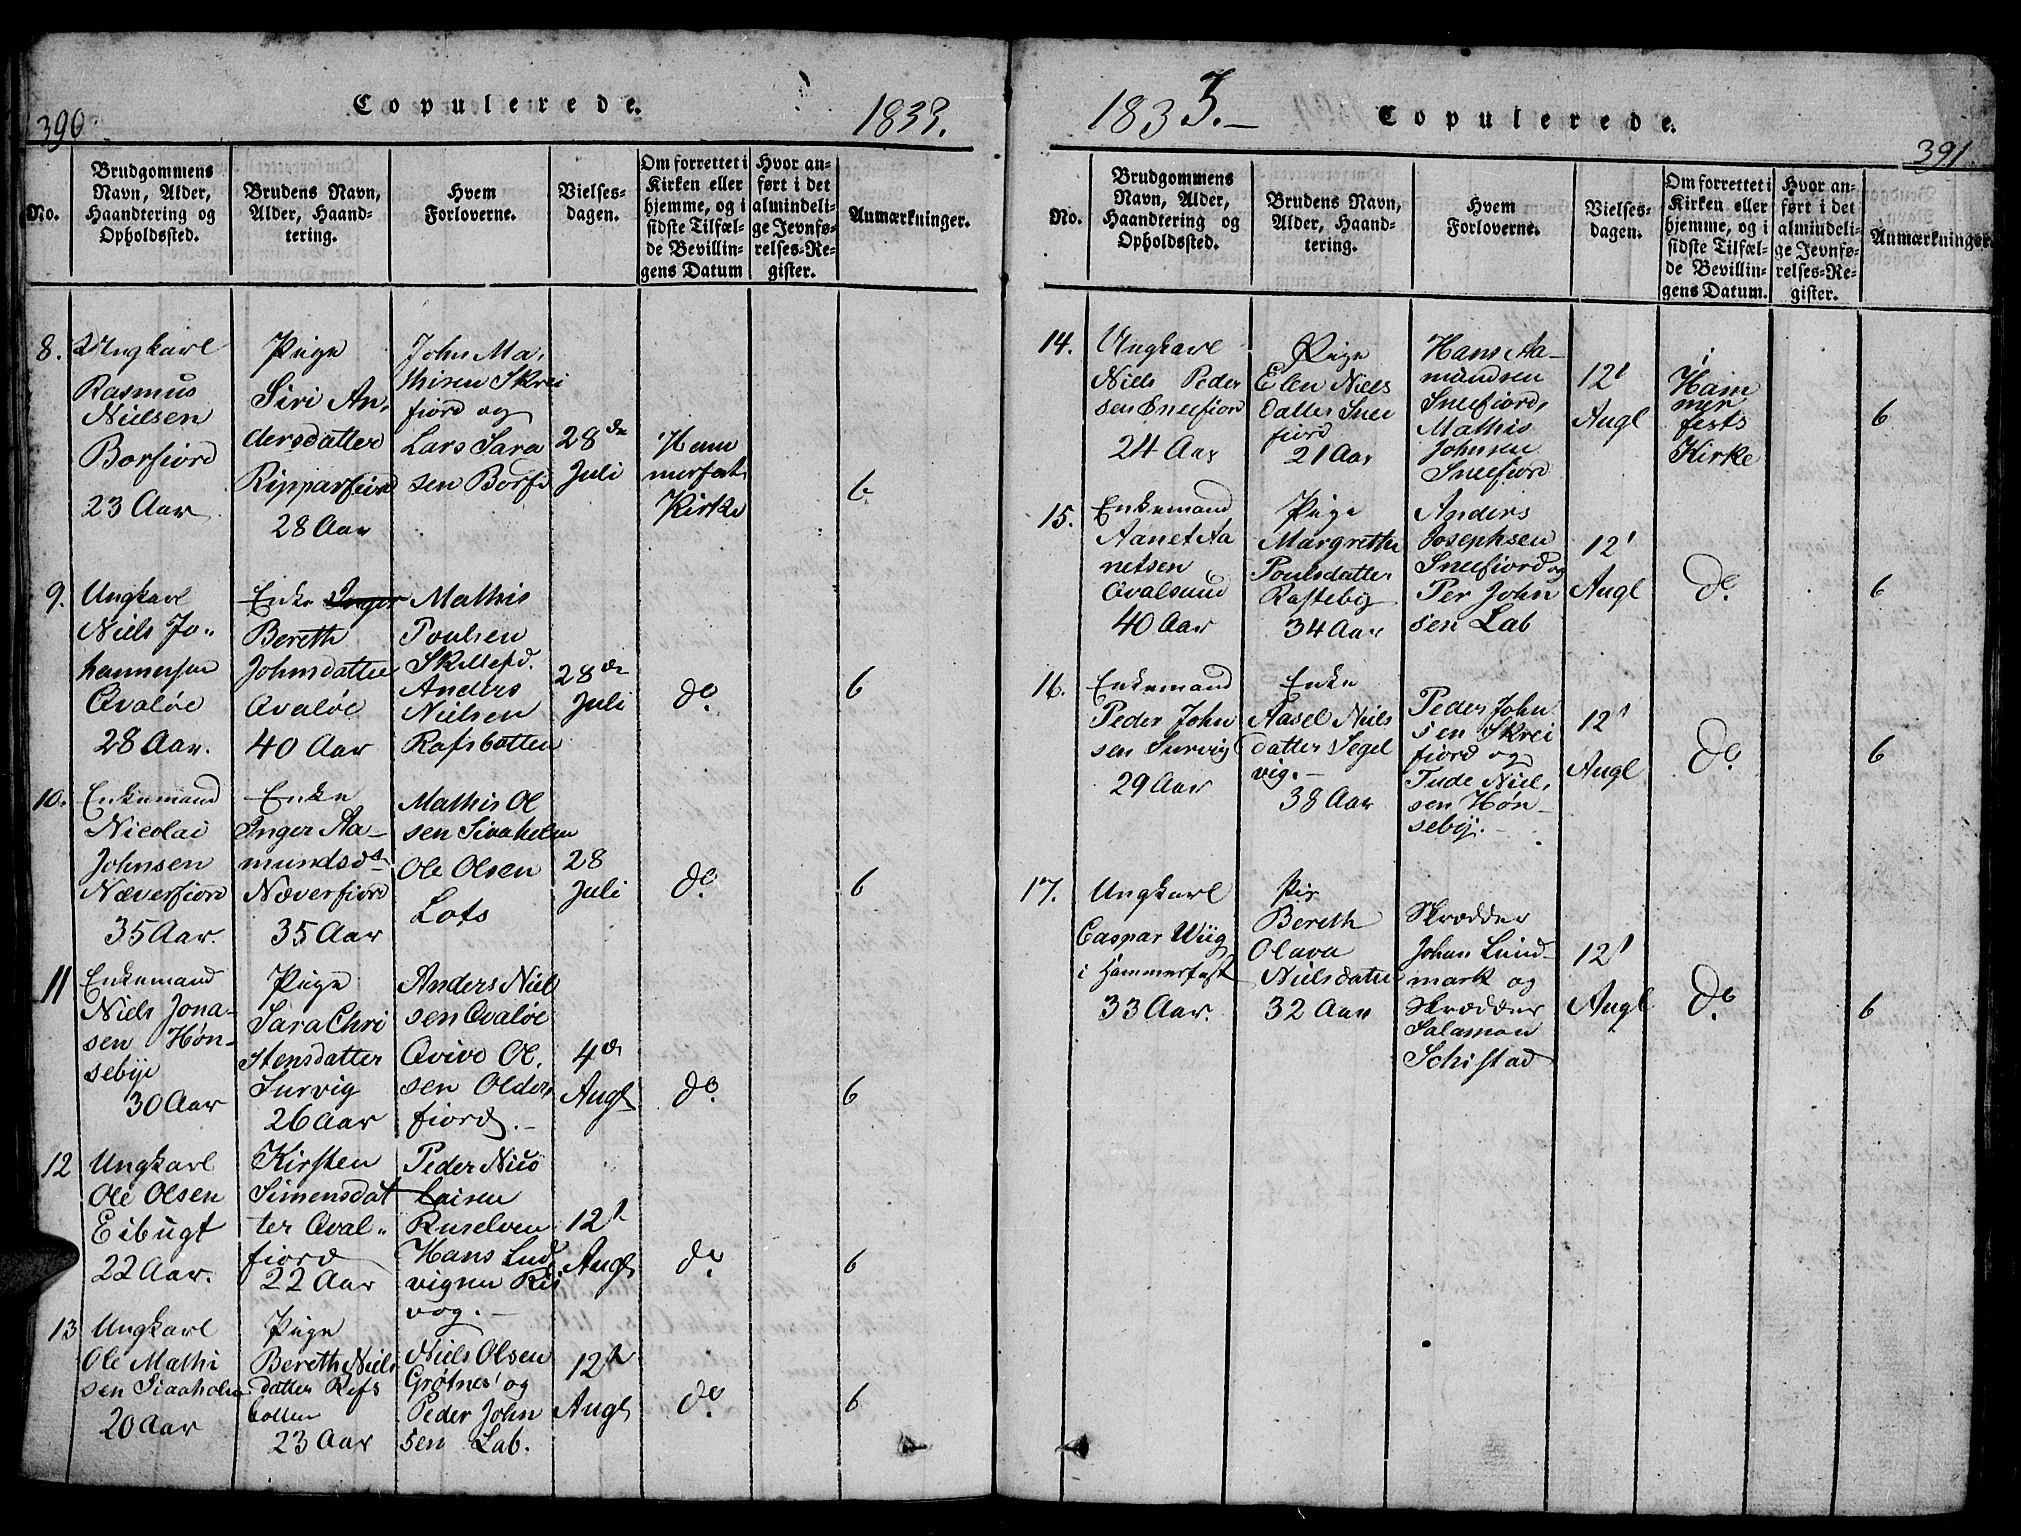 390
Copulerede.
1833.
No.
Brudgommens
Navn, Alder,
Haandtering og
Opholdssted.
Brudens Navn,
Alder, Haand-
tering.
Hvem
Forloverne.
Vielses-
dagen.
Om forrettet i
Kirken eller
hjemme, og i
sidste Tilfæl-
de Bevillin-
gens Datum
Hvor an-
ført i det
almindeli-
ge Jevnfø-
relses-Re-
gister.
Anmærkninger.
8.
Ungkarl
Rasmus
Nielsen
Borfiord
23 Aar
Pige
Siri An-
dersdatter
Ripparfiord
28 Aar
John Ma-
thisen Skrei
fiord og
Lars Sara
sen Borfi
28de
Juli
Ham
merfest
Kirke
6
9.
Ungkarl
Niels Jo-
hannessen
Qvaløe
28 Aar.
Enke Inger
Bereth
Johnsdatter
Qvaløe
40 Aar
Mathis
Poulsen
Skillefd.
Anders
Nielsen
Rafsbotten
28de
Juli
do.
6
10.
Enkemand
Nicolai
Johnsen
Næverfiord
35 Aar.
Enke
Inger Aa-
mundsdr
Næverfiord
35 Aar
Mathis Ol
sen Sivaholm
Ole Olsen
Lots
28
Juli
do
6
11
Enkemand
Niels Jona-
sen Høn-
sebye
30 Aar
Pige
Sara Chri
stensdatter
Survig
26 Aar
Anders Niel
sen Qvaløe
Qvive Ol-
sen Older-
fiord.
4de
Augl
do.
6
12
Ungkarl
Ole Olsen
Eibugt
22 Aar.
Kirsten
Simensdat
ter Qval-
fiord
22 Aar
Peder Nico
laisen
Ruselven
Hans Lud
vigsen Ris
vog.
12te
Augl
do
6
13
Ungkarl
Ole Mathi
sen Sivaholm
20 Aar
Pige
Bereth Niels
datter Refs
botten
23 Aar
Niels Olsen
Grøtnes og
Peder John
sen Lab.
12te
Augl
do.
6
1833.
Copulerede.
391.
No.
Brudgommens
Navn, Alder,
Haandtering og
Opholdssted.
Brudens Navn,
Alder, Haand-
tering.
Hvem
Forloverne.
Vielses-
dagen.
Om forrettet i
Kirken eller
hjemme, og i
sidste Tilfæl-
de Bevillin-
gens Datum.
Hvor an-
ført i det
almindeli-
ge Jevnfø-
relses-Re-
gister.
Anmærkninger.
14.
Ungkarl
Niels Peder
sen Sneefiord
24 Aar
Pige
Elen Niels
datter Snee
fiord
21 Aar
Hans Aa-
mundsen
Sneefiord,
Mathis
Johnsen
Sneefiord
12t
Augl
i
Ham
mer
fests
Kirke
6
15.
Enkemand
Aanet Aa
netsen
Qvalsund
40 Aar
Pige
Margrethe
Poulsdatter
Rastebÿ
34 Aar
Anders
Josephsen
Sneefiord og
Per John
sen Lab
12t
Augl
do.
6
16.
Enkemand
Peder John
sen Survig
29 Aar
Enke
Aasel Niels
datter Segel
vig.
38 Aar
Peder John
sen Skrei
fiord og
Tude Niel-
sen Høn-
sebÿ.
12t
Augl
do.
6
17.
Ungkarl
Caspar Wiig
i Hammerfest
33 Aar.
Pig
Bereth
Olava
Nielsdatter
32 Aar
Skrædder
Johan Lund-
mark og
Skrædder
Salamon
Schistad
12t
Augl
do.
6